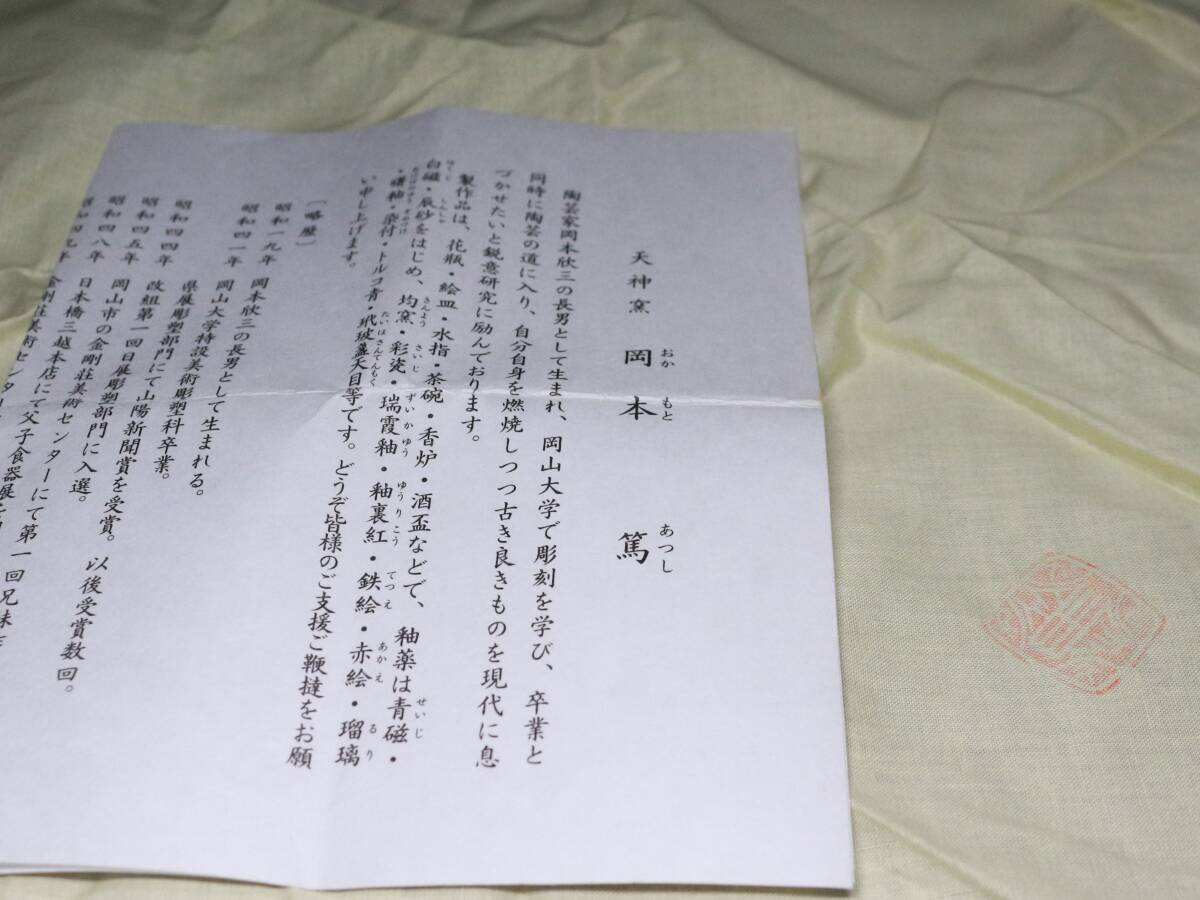 天神窯 岡本 篤
おか もと あつし
陶芸家岡本欣三の長男として生まれ、岡山大学で彫刻を学び、卒業と
同時に陶芸の道に入り、自分自身を燃焼しつつ古き良きものを現代に息
づかせたいと鋭意研究に励んでおります。
製作品は、花瓶・絵皿・水指・茶碗・香炉・酒盃などで、釉薬は青磁・
せいじ
白磁・辰砂をはじめ、均窯・彩瓷・瑞霞釉・釉裏紅・鉄絵・赤絵・瑠璃
はくじ しんしゃ きんよう さいじ ずいかゆう ゆうりこう てつえ あかえ るり
・曙釉・染付・トルコ青・玳玻盞天目等です。どうぞ皆様のご支援ご鞭撻をお願
たいはさんてんもく
い申し上げます。
〔略歴〕
昭和一九年 岡本欣三の長男として生まれる。
昭和四一年 岡山大学特設美術彫塑科卒業。
昭和四四年 県展彫塑部門にて山陽新聞賞を受賞。以後受賞数回。
昭和四五年 改組第一回日展彫塑部門に入選。
昭和四八年 岡山市の金剛荘美術センターにて第一回兄妹
昭和四九年 日本橋三越本店にて父子食器展を
金剛荘美術センター